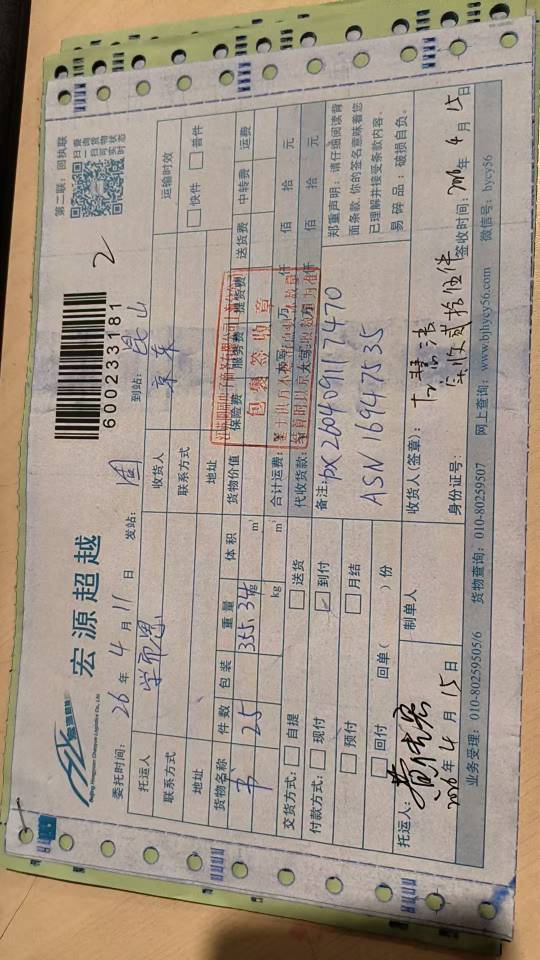 宏源超越
Beijing Hongyuan Chaoyue Logistics Co., Ltd
600233181
第二联：回执联
扫一扫
查询货物
可实时状态
2
委托时间：26年4月11日 发站： 到站：京东 昆山
托运人 学而思 收货人 运输时效
联系方式 联系方式 快件 普件
地址 地址
货物名称 件数 包装 重量 体积 货物价值 保险费 服务费 提货费 送货费 中转费 运费
书 25 355.34kg m³
kg m³
包裹签收章
交货方式： 自提 送货 合计运费： 大写 万 仟 佰 拾 元
付款方式： 现付 到付 代收货款： 大写 万 仟 佰 拾 元
预付 月结 备注：px2604091117470
回付 回单（ ）份 ASN 16947535
郑重声明：请仔细阅读背
面条款，你的签名意味着您
已理解并接受条款内容。
易碎品：破损自负。
托运人： 制单人 收货人（签章）： 实收贰拾伍件
2026年4月15日 身份证号： 签收时间：2026年4月15日
业务受理：010-80259505/6 货物查询：010-80259507 网上查询：www.bjhycy56.com 微信号：hycy56